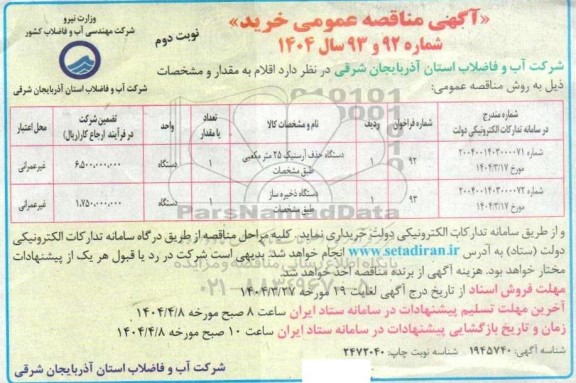 وزارت نیرو
شرکت مهندسی آب و فاضلاب کشور
شرکت آب و فاضلاب استان آذربایجان شرقی
«آگهی مناقصه عمومی خرید»
شماره ۹۲ و ۹۳ سال ۱۴۰۴
نوبت دوم
شرکت آب و فاضلاب استان آذربایجان شرقی در نظر دارد اقلام به مقدار و مشخصات
ذیل به روش مناقصه عمومی:
شماره مندرج در سامانه تدارکات الکترونیکی دولت | شماره فراخوان | ردیف | نام و مشخصات کالا | تعداد یا مقدار | واحد | تضمین شرکت در فرآیند ارجاع کار(ریال) | محل اعتبار
شماره ۲۰۰۴۰۰۱۴۰۳۰۰۰۰۷۱ مورخ ۱۴۰۴/۳/۱۷ | ۹۲ | ۱ | دستگاه حذف آرسنیک ۲۵ متر مکعبی طبق مشخصات | ۱ | دستگاه | ۶،۵۰۰،۰۰۰،۰۰۰ | غیرعمرانی
شماره ۲۰۰۴۰۰۱۴۰۳۰۰۰۰۷۲ مورخ ۱۴۰۴/۳/۱۷ | ۹۳ | ۱ | دستگاه ذخیره ساز طبق مشخصات | ۱ | دستگاه | ۱،۷۵۰،۰۰۰،۰۰۰ | غیرعمرانی
و از طریق سامانه تدارکات الکترونیکی دولت خریداری نماید. کلیه مراحل مناقصه از طریق درگاه سامانه تدارکات الکترونیکی
دولت (ستاد) به آدرس www.setadiran.ir انجام خواهد شد. بدیهی است شرکت در رد یا قبول هر یک از پیشنهادات
مختار خواهد بود. هزینه آگهی از برنده مناقصه اخذ خواهد شد.
مهلت فروش اسناد از تاریخ درج آگهی لغایت ۱۹ مورخه ۱۴۰۴/۳/۲۷
آخرین مهلت تسلیم پیشنهادات در سامانه ستاد ایران ساعت ۸ صبح مورخه ۱۴۰۴/۴/۸
زمان و تاریخ بازگشایی پیشنهادات در سامانه ستاد ایران ساعت ۱۰ صبح مورخه ۱۴۰۴/۴/۸
شناسه آگهی: ۱۹۴۵۷۴۰ شناسه نوبت چاپ: ۲۴۷۲۰۴۰
شرکت آب و فاضلاب استان آذربایجان شرقی
ParsNamadData